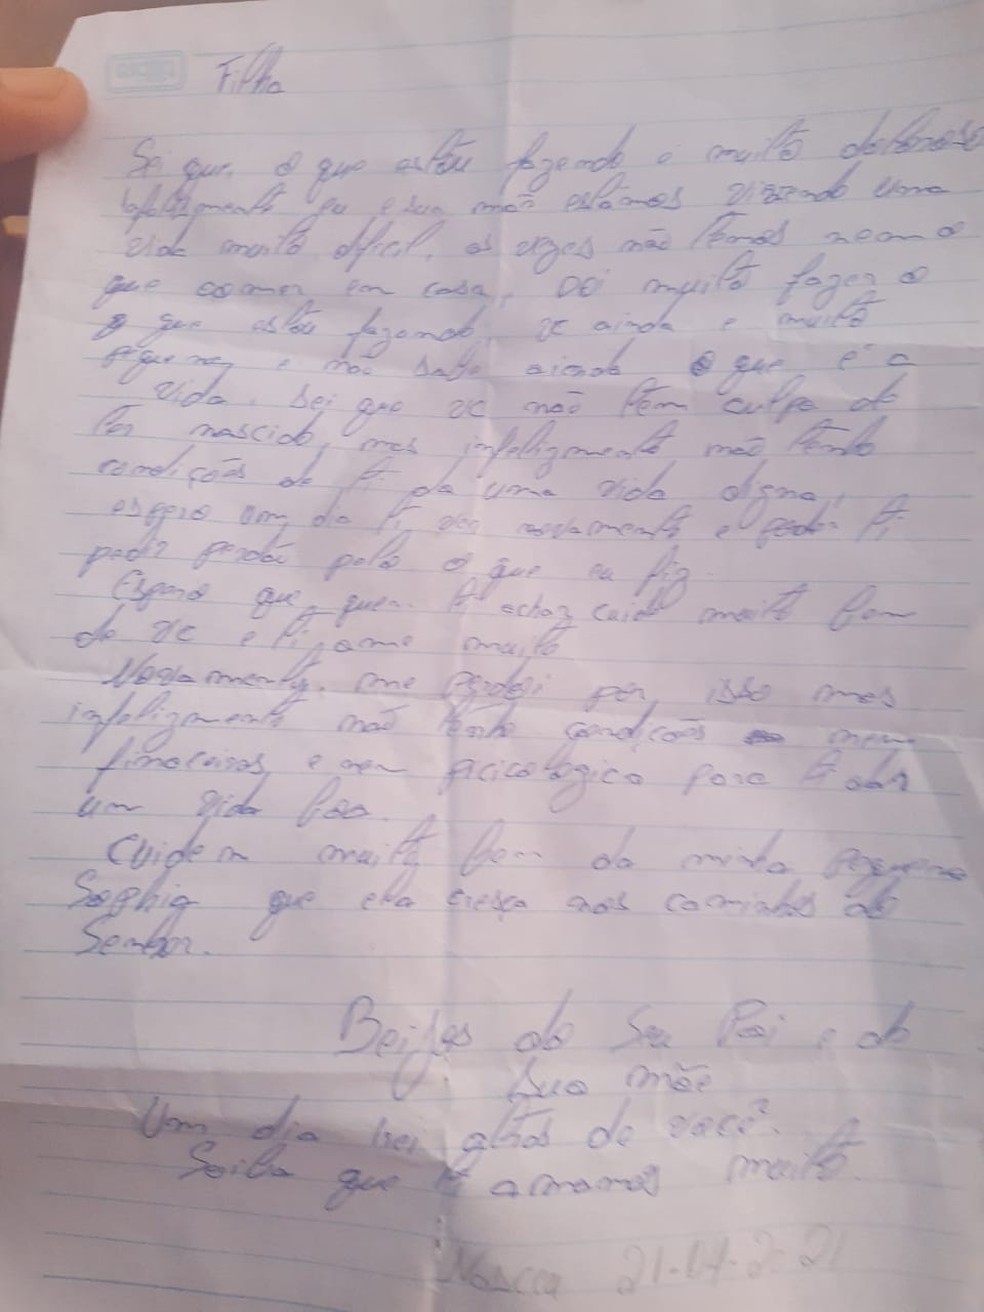 Filha
Sei que o que estou fazendo é muito doloroso
infelizmente eu e sua mãe estamos vivendo uma
vida muito dificil, as vezes não temos nem o
que comer em casa, Dói muito fazer o
que estou fazendo, vc ainda e muito
pequena e não sabe ainda o que é a
vida. Sei que vc não têm culpa de
ter nascido, mas infelizmente não tenho
condições de ti da uma vida digna,
espero um dia ti ver novamente e poder ti
pedir perdão pelo o que eu fiz.
Espero que quem ti achar cuide muito bem
de vc e ti ame muito
Novamente, me perdoi por isso mas
infelizmente não tenho condições nem
finaceiras e nem picicologico para ti dar
um vida boa.
Cuidem muito bem da minha pequena
Sophia que ela cresça nos caminhos do
Senhor.
Beijos do Seu Pai e da
Sua mãe
Um dia irei atras de você.
Saiba que ti amamos muito.
21.04.2021